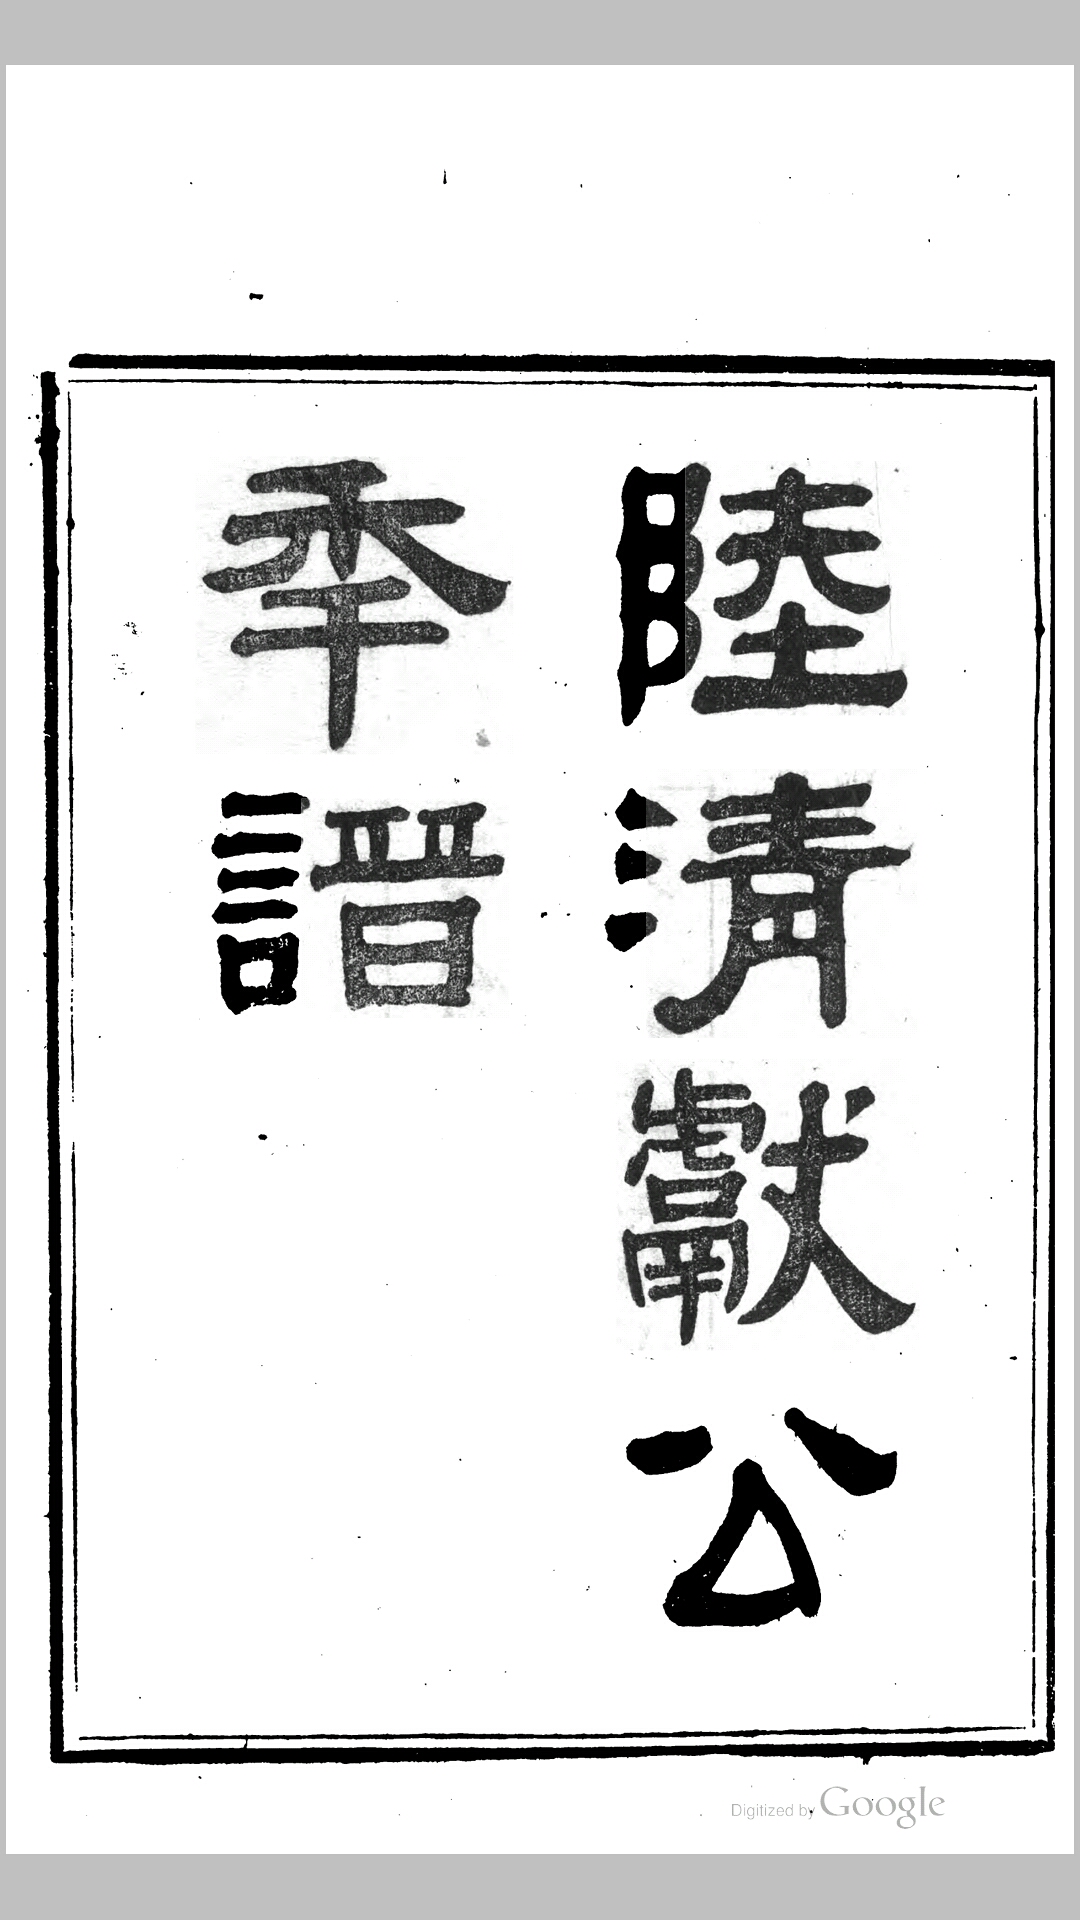 陸清獻公
秊譜
Digitized by Google